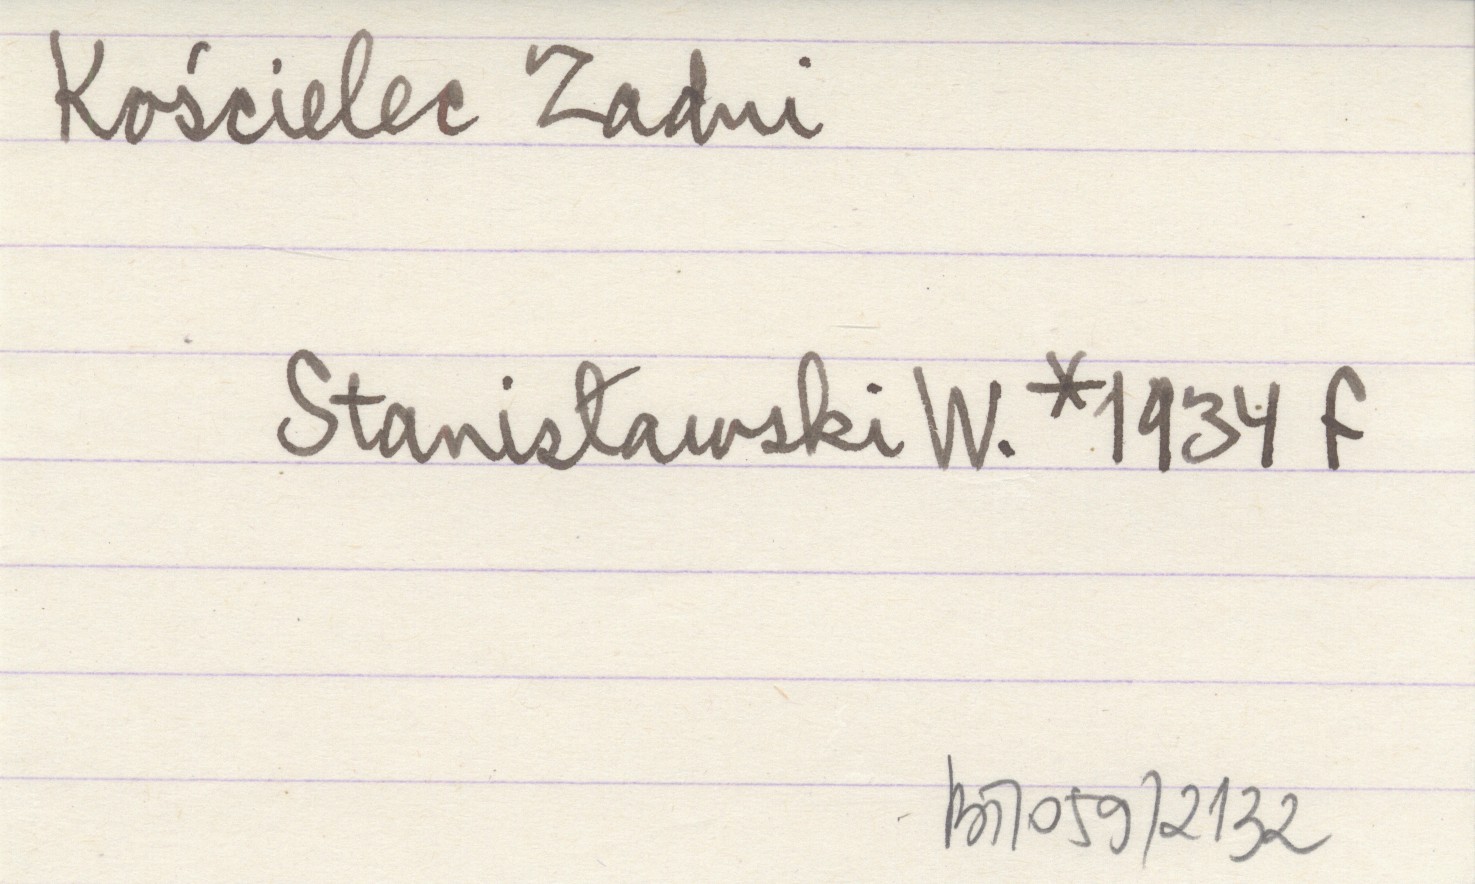 Kościelec Zadni
Stanisławski W. *1934 f
059/2132